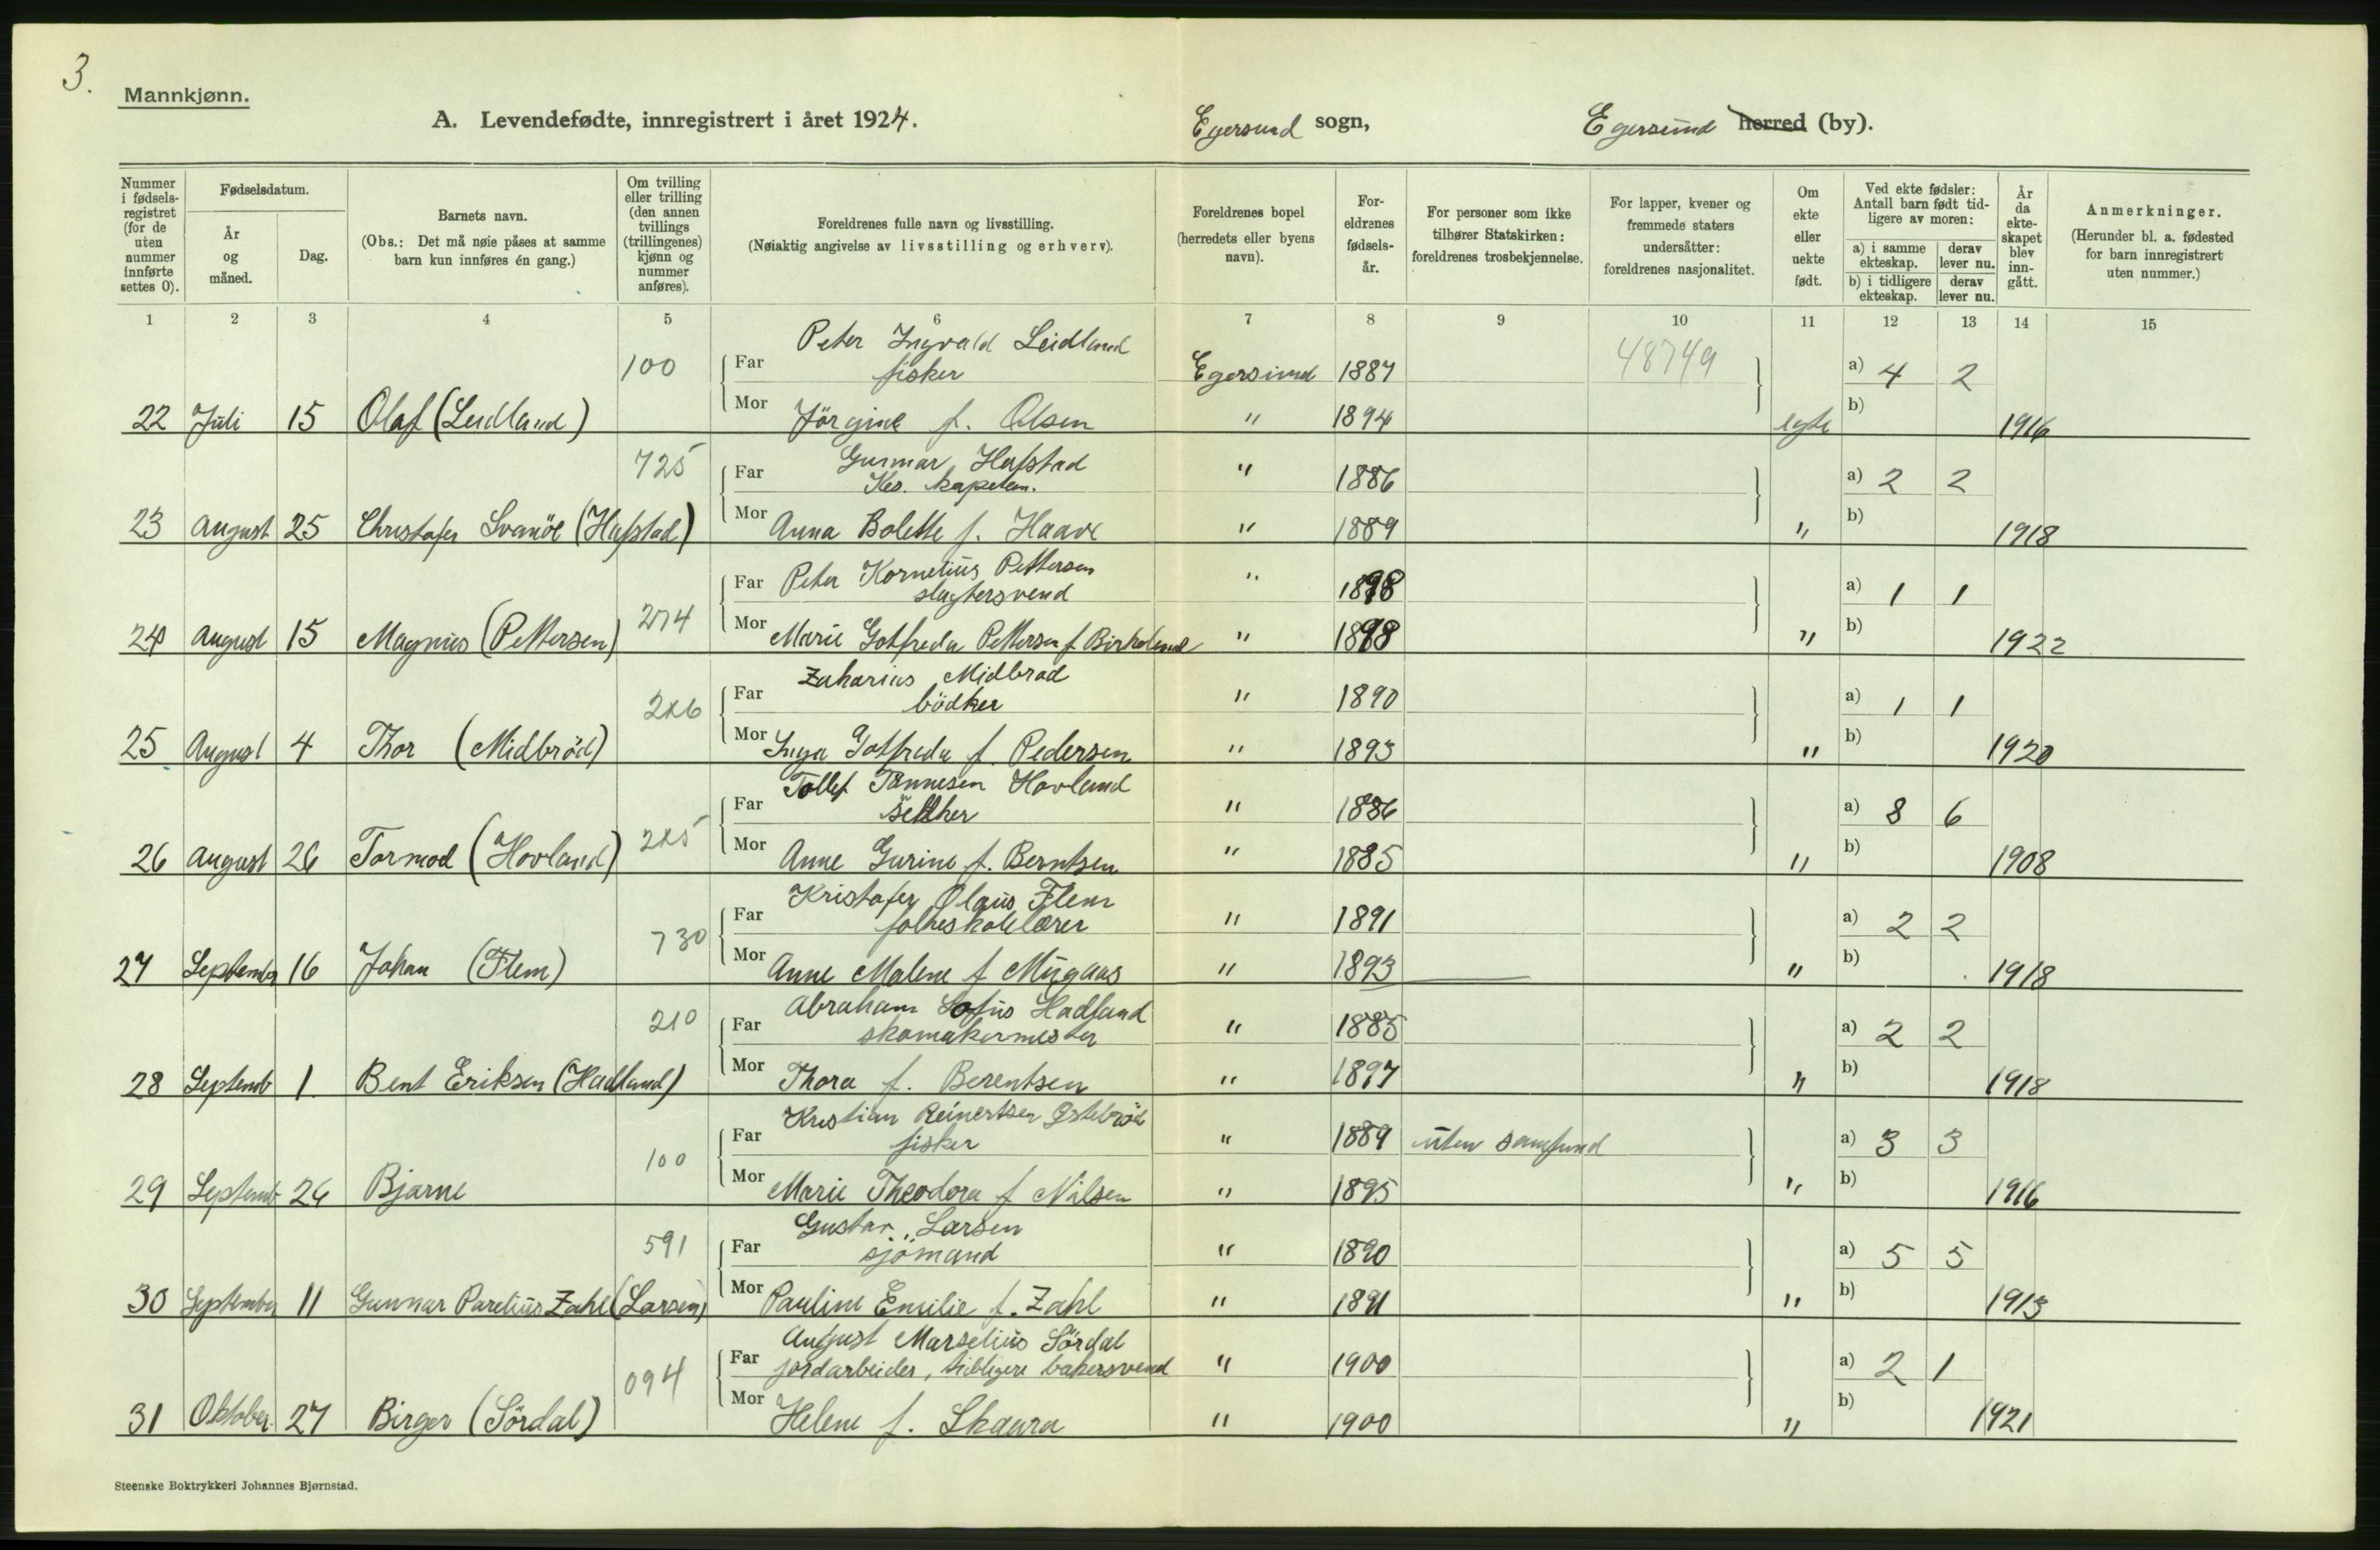 3.
Mannkjønn.
A. Levendefødte, innregistrert i året 1924. Egersund sogn, Egersund herred (by).
Nummer i fødsels-registret (for de uten nummer innførte settes 0).
Fødselsdatum.
År og måned.
Dag.
Barnets navn.
(Obs.: Det må nøie påses at samme barn kun innføres én gang.)
Om tvilling eller trilling (den annen tvillings (trillingenes) kjønn og nummer anføres).
Foreldrenes fulle navn og livsstilling.
(Nøiaktig angivelse av livsstilling og erhverv).
Foreldrenes bopel (herredets eller byens navn).
For-eldrenes fødsels-år.
For personer som ikke tilhører Statskirken: foreldrenes trosbekjennelse.
For lapper, kvener og fremmede staters undersåtter: foreldrenes nasjonalitet.
Om ekte eller uekte født.
Ved ekte fødsler: Antall barn født tid-ligere av moren:
a) i samme ekteskap. derav lever nu.
b) i tidligere ekteskap. derav lever nu.
År da ekte-skapet blev inn-gått.
Anmerkninger.
(Herunder bl. a. fødested for barn innregistrert uten nummer.)
1 2 3 4 5 6 7 8 9 10 11 12 13 14 15
Peter Ingvald Leidland
100 Far fisker Egersund 1887 48749 a) 4 2
22 Juli 15 Olaf (Leidland) Mor Jörgine f. Olsen " 1894 egte b) 1916
Gunnar Hafstad
725 Far Res. kapelan. " 1886 a) 2 2
23 August 25 Christofer Svanöe (Hafstad) Mor Anna Bolette f. Haave " 1889 " b) 1918
Peter Kornelius Pettersen
274 Far slagtersvend " 1898 a) 1 1
24 August 15 Magnus (Pettersen) Mor Marie Gotfreda Pettersen f Birkeland " 1898 " b) 1922
Zakarias Midbrød
226 Far bödker " 1890 a) 1 1
25 August 4 Thor (Midbrød) Mor Inga Gotfreda f. Pedersen " 1893 " b) 1920
Tollef Tønnesen Hovland
225 Far " 1886 a) 8 6
26 August 26 Tormod (Hovland) Mor Anne Gurine f. Berntsen " 1885 " b) 1908
Kristofer Olaus Flem
730 Far folkeskolelærer " 1891 a) 2 2
27 September 16 Johan (Flem) Mor Anne Malene f Mugaas " 1893 " b) 1918
Abraham Sofus Hadland
210 Far skomakermester " 1885 a) 2 2
28 Septemb 1. Bent Eriksen (Hadland) Mor Thora f. Berentsen " 1897 " b) 1918
Kristian Reinertsen Østebrød
100 Far fisker " 1889 uten samfund a) 3 3
29 Septemb 26 Bjarne Mor Marie Theodora f Nilsen " 1895 " b) 1916
Gustav Larsen
591 Far sjömand " 1890 a) 5 5
30 September 11 Gunnar Parelius Zahl (Larsen) Mor Pauline Emilie f. Zahl " 1891 " b) 1913
August Marselius Sördal
094 Far jordarbeider, tidligere bakersvend " 1900 a) 2 1
31 Oktober 27 Birger (Sördal) Mor Helene f. Skaara " 1900 " b) 1921
Steenske Boktrykkeri Johannes Bjørnstad.